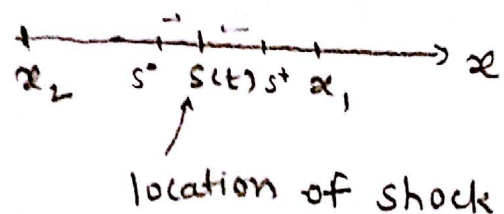 x₂ s⁻ s(t) s⁺ x₁ x
location of shock